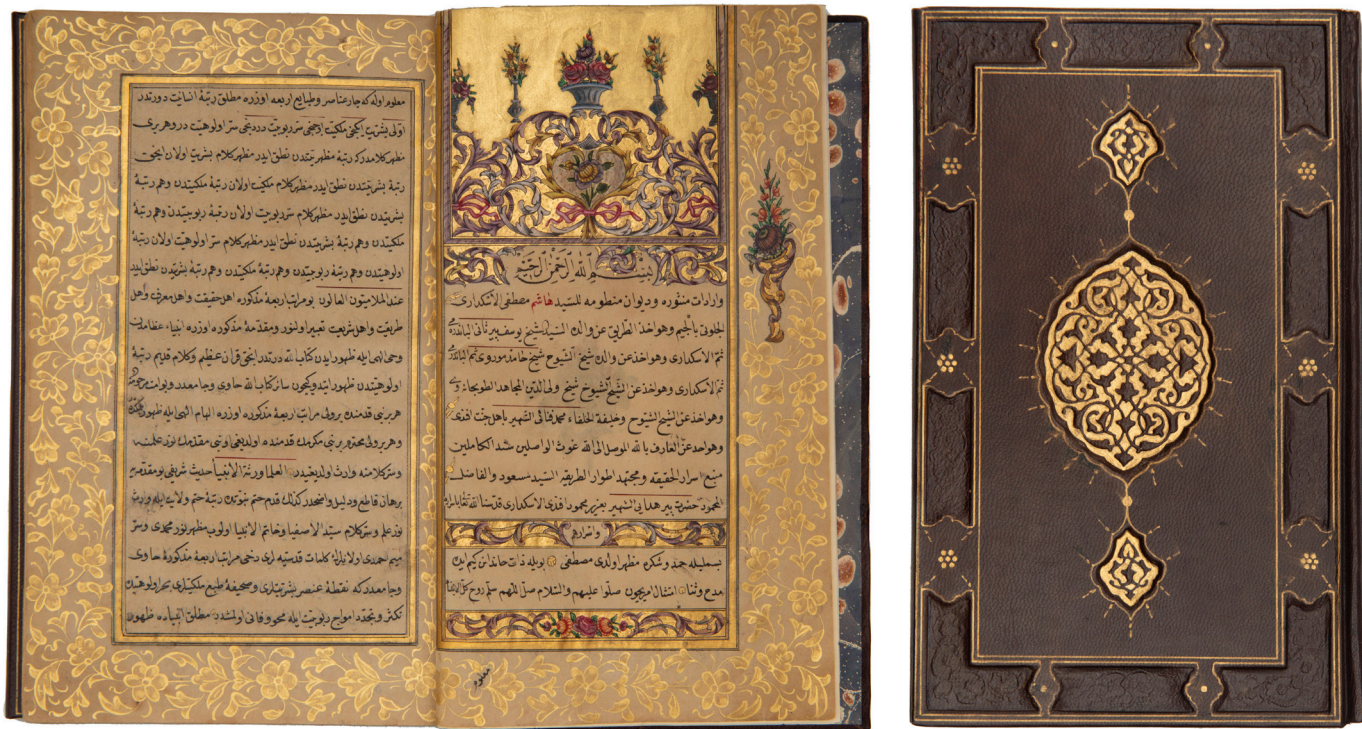 بسم الله الرحمن الرحيم
واردات منثوره وديوان منظومه للسيد هاشم مصطفى الاسكدارى
الجلوتى بالجيم وهو اخذ الطريق عن والده السيد الشيخ يوسف
ثم الاسكدارى وهو اخذ عن والده شيخ الشيوخ شيخ حامد
ثم الاسكدارى وهو اخذ عن الشيخ الشيوخ شيخ ولى الدين المجاهد
وهو اخذ عن الشيخ الشيوخ وخليفة الخلفاء محمد فنائى الشهير باهل جنت افندى
وهو اخذ عن العارف بالله الموصل الى الله غوث الواصلين سند الكاملين
منبع اسرار الحقيقه ومجتهد اطوار الطريقه السيد مسعود والفاضل
المحمود حضرت پير هدايى الشهير بعزيز محمود افندى الاسكدارى قدسنا الله تعالى
واسرارهم
بسمليله حمد وشكره مظهر اولدى مصطفى بويله ذات حامدانن كيم ايده
مدح وثنا امتثال امريچون صلوا عليهم والسلام صل اللهم سلم روح
معلوم
معلوم اوله كه چار عناصر وطبايع اربعه اوزره مطلق رتبۀ انسانيت دورتدر
اولى بشريت ايكنجى ملكيت اوچنجى سر ربوبيت دردنجى سر اولوهيت در وهر برى
مظهر كلامدر كه رتبۀ مظهريتندن نطق ايدر مظهر كلام بشريت اولان ايكنجى
رتبۀ بشريتندن نطق ايدر مظهر كلام ملكيت اولان رتبۀ ملكيتدن وهم رتبۀ
بشريتدن نطق ايدر مظهر كلام سر ربوبيت اولان رتبۀ ربوبيتدن وهم رتبۀ
ملكيتدن وهم رتبۀ بشريتدن نطق ايدر مظهر كلام سر اولوهيت اولان رتبۀ
اولوهيتدن وهم رتبۀ ربوبيتدن وهم رتبۀ ملكيتدن وهم رتبۀ بشريتدن نطق ايدر
عند الملاميون العالون بو مراتب اربعۀ مذكوره اهل حقيقت واهل معرفت واهل
طريقت واهل شريعت تعبير اولنور ومقدمۀ مذكوره اوزره انبياء عظامدن
وحى الهى ايله ظهور ايدن كتاب الله درتدر انجق قرآن عظيم وكلام قديم رتبۀ
اولوهيتدن ظهور ايتدوكيچون سائر كتاب الله حاوى وجامعدر
هر بر نبى قدمنده بر ولى مراتب اربعۀ مذكوره اوزره الهام الهى ايله ظهور
وهر بر ولى محترم بر نبى مكرمك قدمنده اولديغى اول نبى مقدمك نور علمنه
وسر كلامنه وارث اولديغيدن العلما ورثة الانبيا حديث شريفى بو مقدمه
برهان قاطع ودليل واضحدر كذلك قدم ختم نبوتدن رتبۀ ختم ولايت ايله وارث
نور علم وسر كلام سيد الاصفيا وخاتم الانبيا اولوب مظهر نور محمدى وسر
ميم احمدى اولانلرك كلمات قدسيه لرى دخى مراتب اربعۀ مذكوره حاوى
وجامعدر كه نقطۀ عنصر بشريتلرى وصحيفۀ طبع ملكيتلرى بحر اولوهيتدن
تكثر وتجدد امواج ربوبيت ايله محو وفانى اولمشدر مطلق